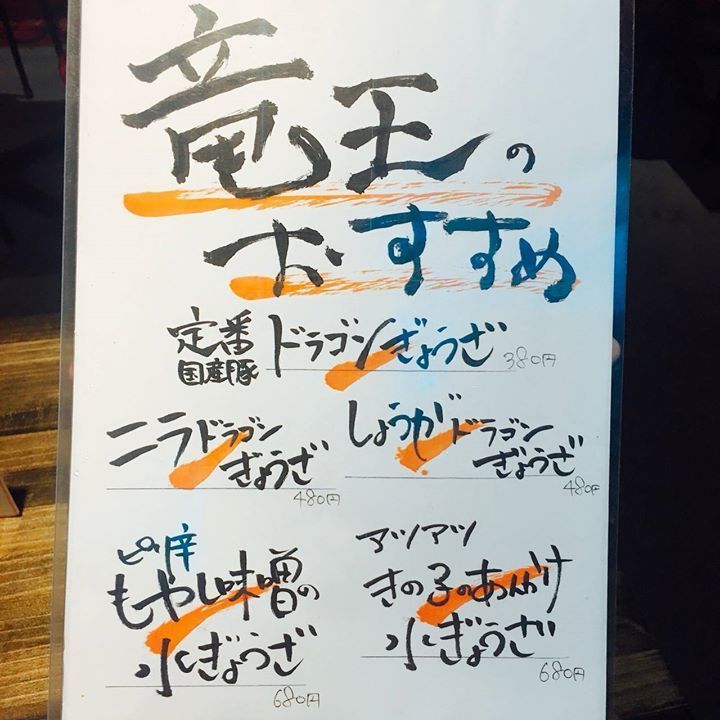 竜王の
おすすめ
定番
国産豚
ドラゴンぎょうざ
380円
ニラドラゴン
ぎょうざ
480円
しょうがドラゴン
ぎょうざ
480円
ピリ辛
もやし味噌の
水ぎょうざ
680円
アツアツ
きの子のあんかけ
水ぎょうざ
680円